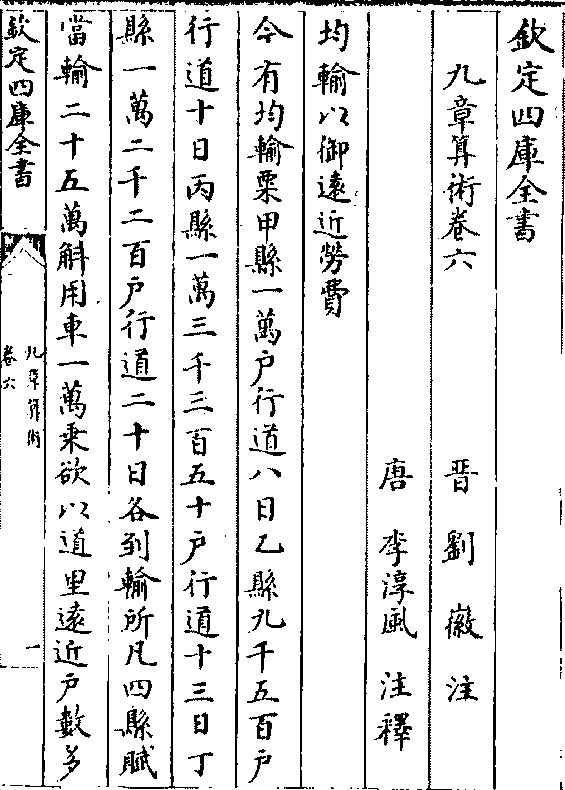 欽定四庫全書
九章算術卷六
晋劉徽注
唐李淳風注釋
均輸以御遠近勞費
今有均輸粟甲縣一萬户行道八日乙縣九千五百户
行道十日丙縣一萬三千三百五十户行道十三日丁
縣一萬二千二百户行道二十日各到輸所凡四縣賦
當輸二十五萬斛用車一萬乘欲以道里遠近户數多
欽定四庫全書
九章算術
卷六
一